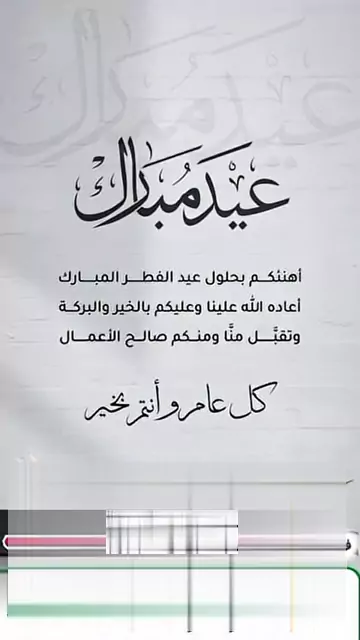 عيد مبارك
عيد مبارك
أهنئكم بحلول عيد الفطر المبارك
أعاده الله علينا وعليكم بالخير والبركة
وتقبَّل منَّا ومنكم صالح الأعمال
كل عام و أنتم بخير